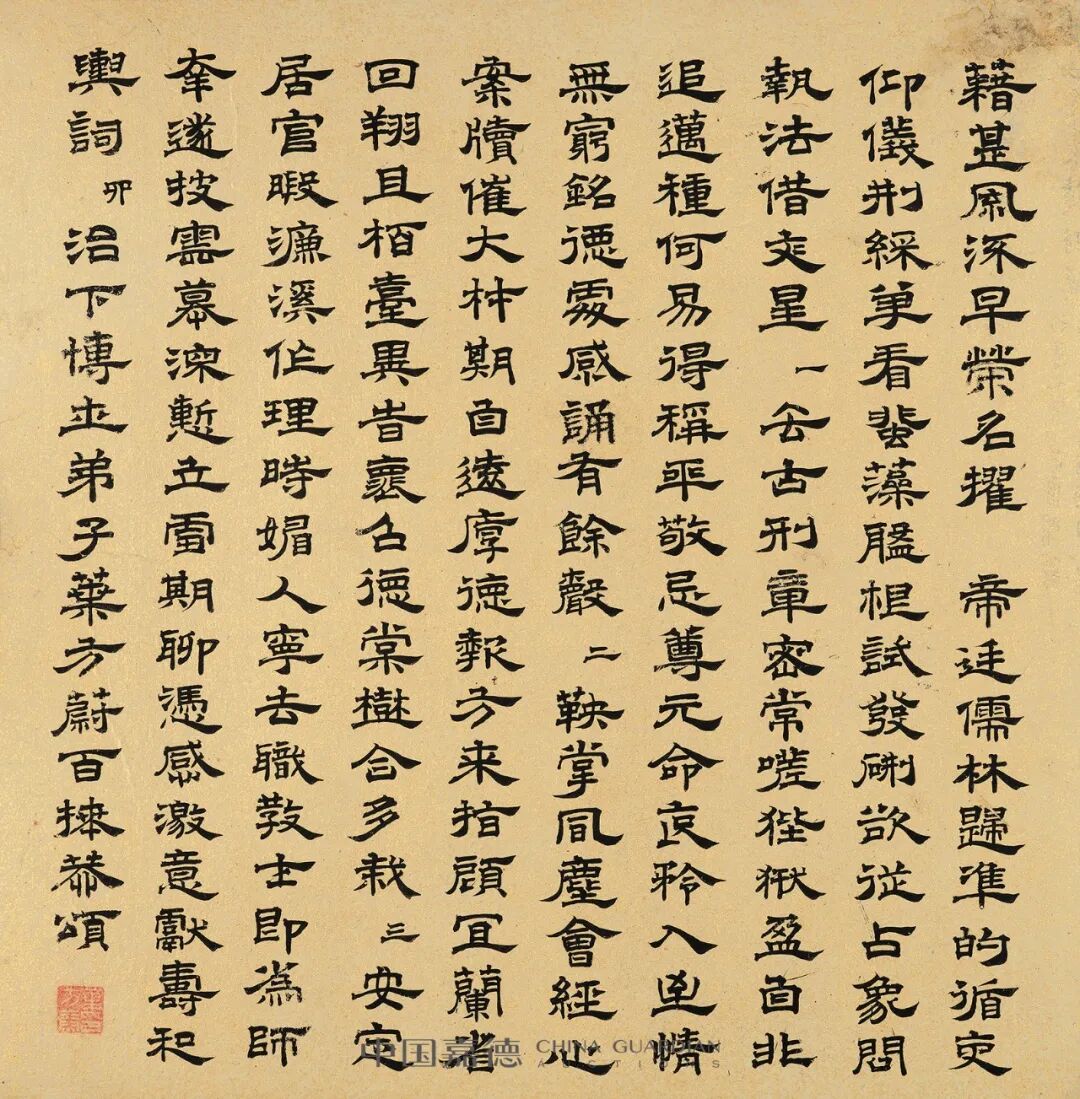 藉甚風流早榮名擢 帝廷儒林歸準的循吏
仰儀刑綵筆看蜚藻盤根試發硎欲從占象問
執法借文星 一 去古刑章密常嗟狴獄盈自非
追邁種何易得稱平敬忌尊元命哀矜入盡情
無窮銘德處感誦有餘聲 二 鞅掌風塵會經心
案牘催大材期自遠厚德報方來指顧宜蘭省
回翔且栢臺異旹襃召德棠樹合多栽 三 安定
居官暇濂溪作理時媚人寧去職教士即為師
幸遂披雲慕深慙立雪期聊憑感激意獻壽和
輿詞 四 治下博士弟子葉方蔚百拜恭頌
中国嘉德 CHINA GUARDIAN
AUCTIONS